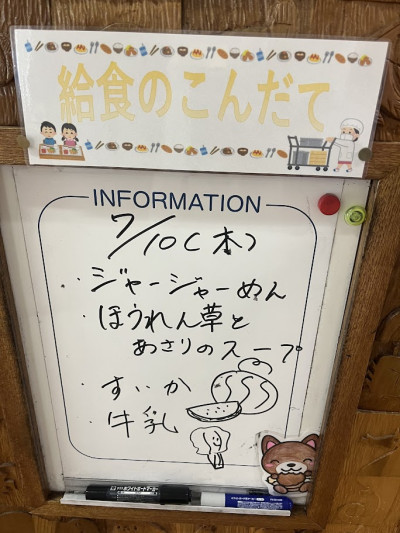 給食のこんだて
INFORMATION
7/10(木)
・ジャージャーめん
・ほうれん草と
あさりのスープ
・すいか
・牛乳